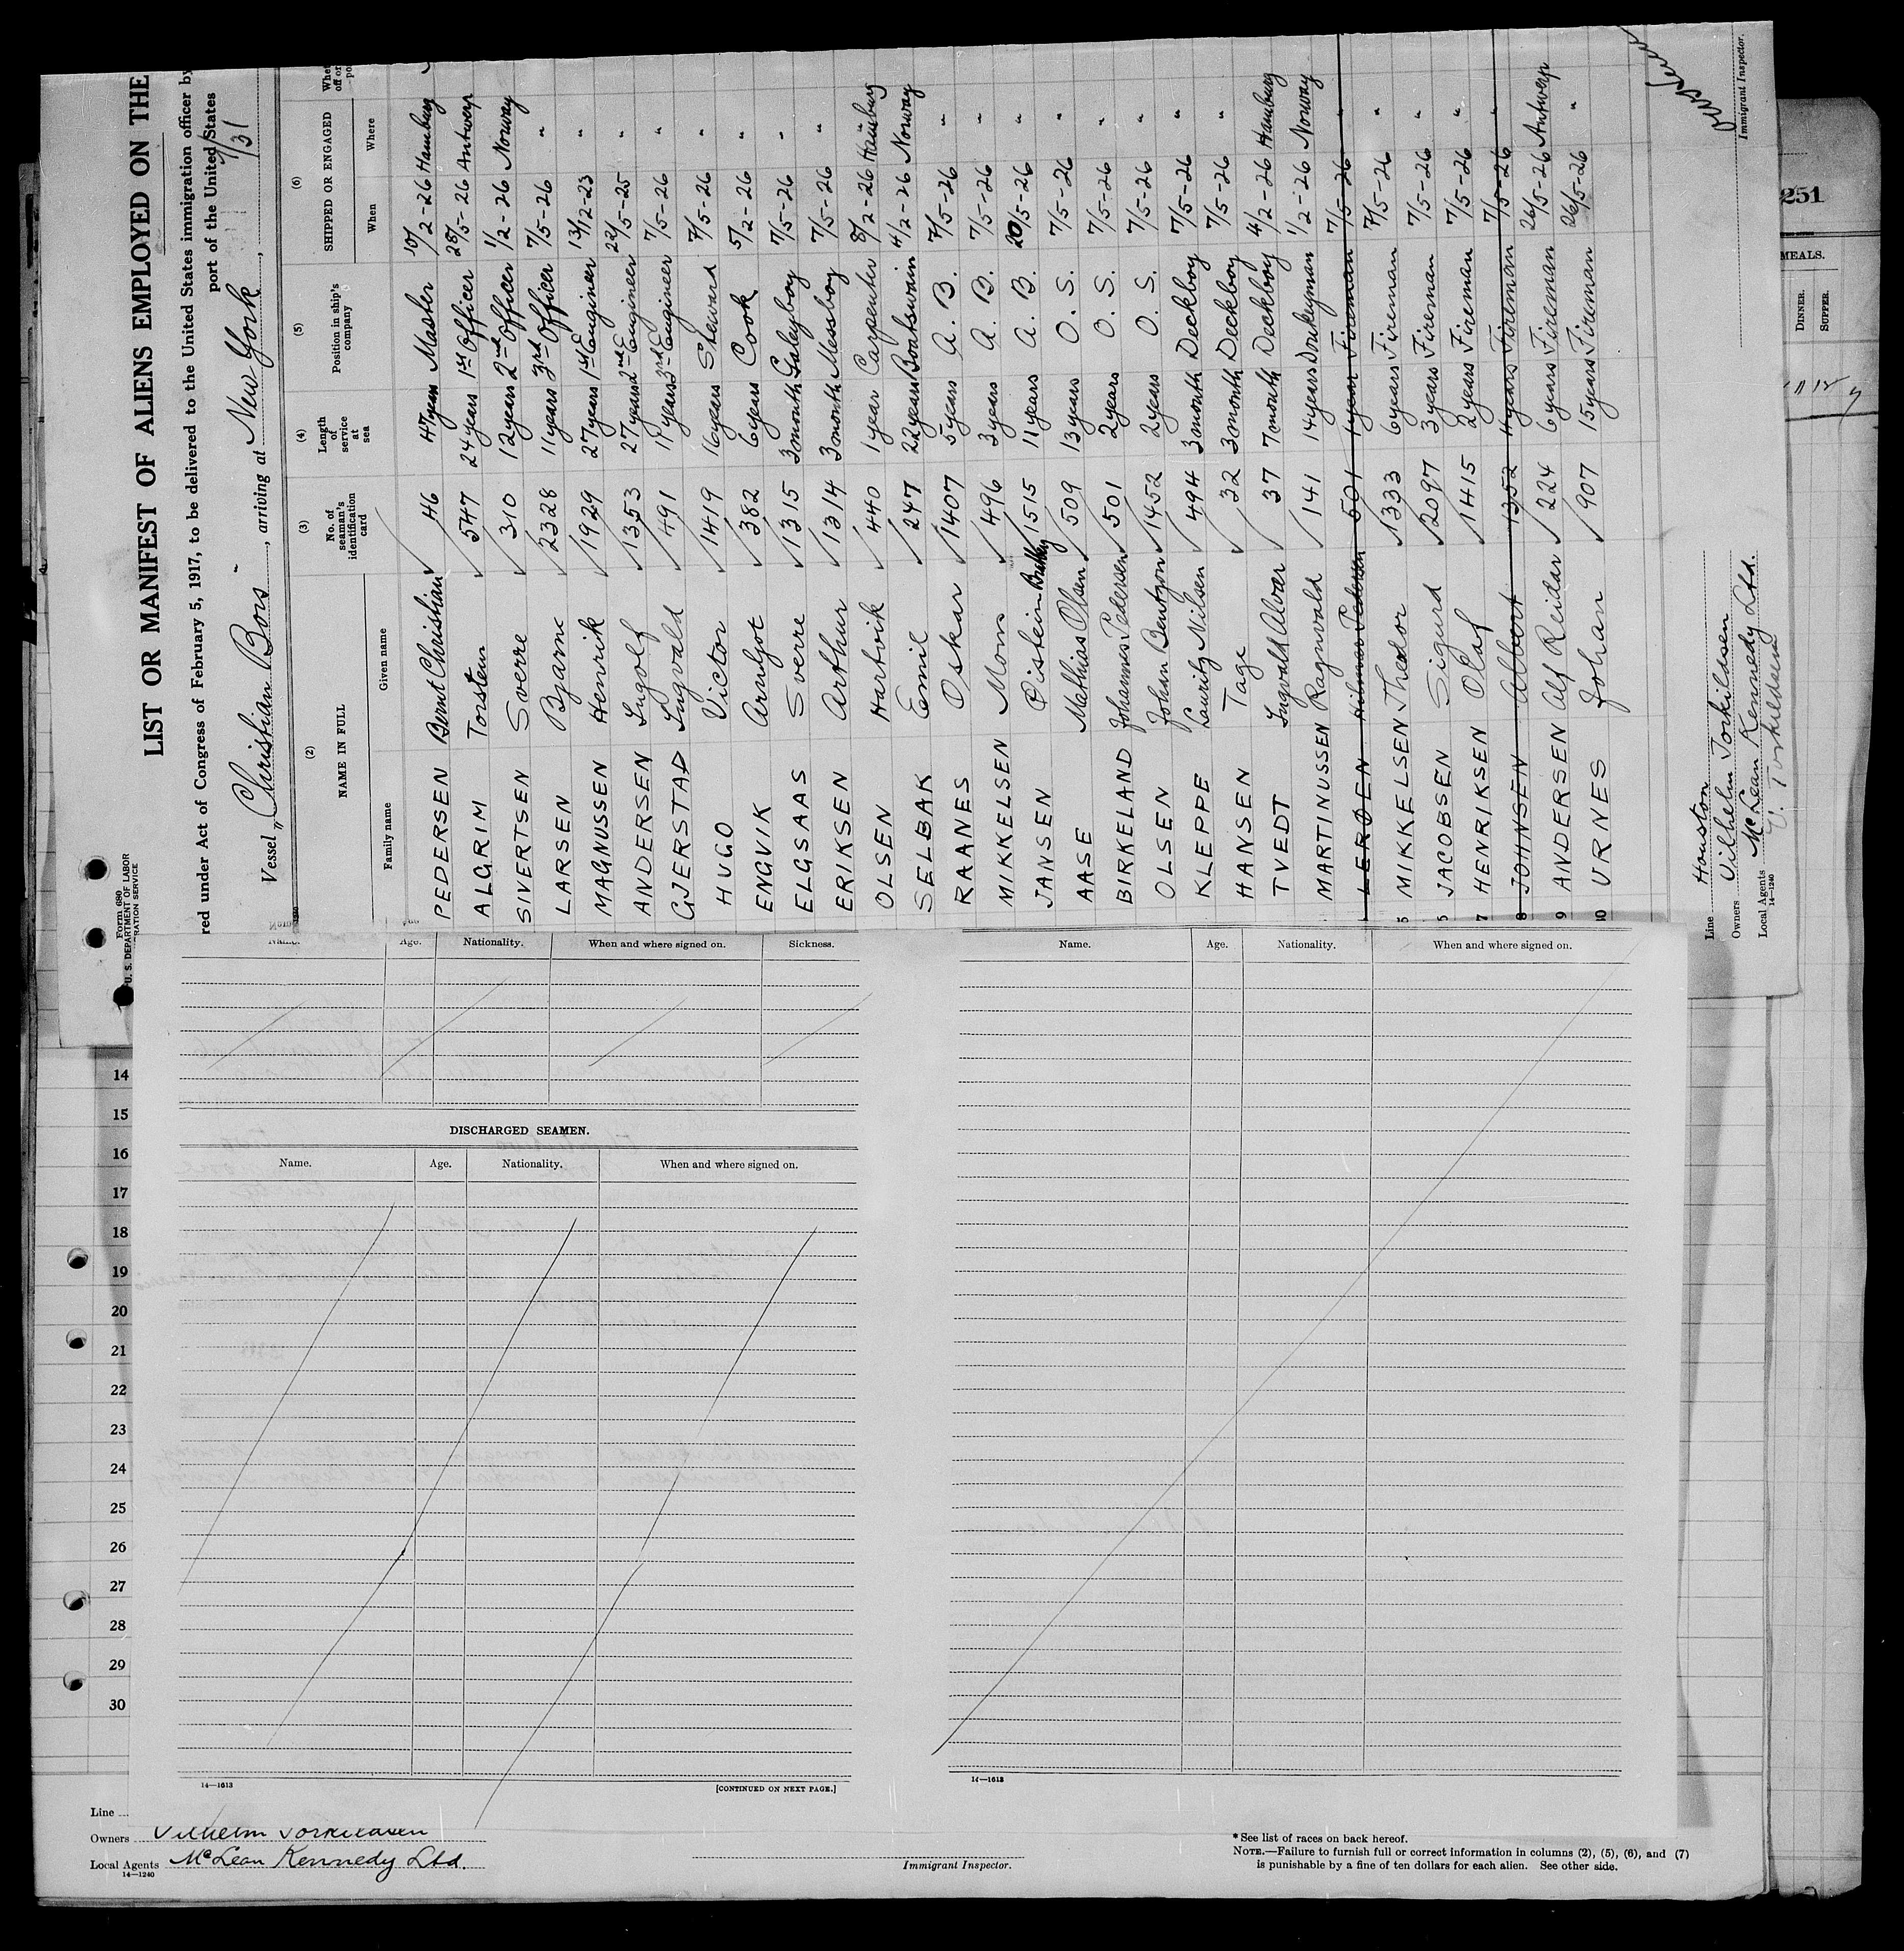 Form 680
U. S. DEPARTMENT OF LABOR
RATION SERVICE
LIST OR MANIFEST OF ALIENS EMPLOYED ON THE
red under Act of Congress of February 5, 1917, to be delivered to the United States immigration officer by
port of the United States
Vessel "Christian Bors", arriving at New York, 7/31
(2) (3) (4) (5) (6)
NAME IN FULL No. of seaman's identification card Length of service at sea Position in ship's company SHIPPED OR ENGAGED
Family name Given name When Where
PEDERSEN Bernt Christian 46 47 years Master 10/2-26 Hamburg
ALGRIM Torstein 547 24 years 1st Officer 28/5-26 Antwerp
SIVERTSEN Sverre 310 12 years 2nd Officer 1/2-26 Norway
LARSEN Bjarne 2328 11 years 3rd Officer 7/5-26 "
MAGNUSSEN Henrik 1929 27 years 1st Engineer 13/12-23 "
ANDERSEN Ingolf 1353 27 years 2nd Engineer 22/5-25 "
GJERSTAD Ingvald 491 11 years 3rd Engineer 7/5-26 "
HUGO Victor 1419 16 years Steward 7/5-26 "
ENGVIK Arnljot 382 6 years Cook 5/2-26 "
ELGSAAS Sverre 1315 3 month Galleyboy 7/5-26 "
ERIKSEN Arthur 1314 3 month Messboy 7/5-26 "
OLSEN Hartvik 440 1 year Carpenter 8/2-26 Hamburg
SELBAK Emil 247 22 years Boatswain 4/2-26 Norway
RAANES Oskar 1407 5 years A. B. 7/5-26 "
MIKKELSEN Mons 496 3 years A. B. 7/5-26 "
JANSEN Oistein 1515 11 years A. B. 20/5-26 "
AASE Mathias Olsen 509 13 years O. S. 7/5-26 "
BIRKELAND Johannes Pedersen 501 2 years O. S. 7/5-26 "
OLSEN Johan Bentzon 1452 2 years O. S. 7/5-26 "
KLEPPE Lauritz Nilsen 494 3 month Deckboy 7/5-26 "
HANSEN Tage 32 3 month Deckboy 7/5-26 "
TVEDT Ingvald Alver 37 7 month Deckboy 4/2-26 Hamburg
MARTINUSSEN Ragnvald 141 14 years Donkeyman 1/2-26 Norway
LERØEN Hilmar Pedersen 501 1 year Fireman 7/5-26 "
5 MIKKELSEN Thedor 1333 6 years Fireman 7/5-26 "
6 JACOBSEN Sigurd 2097 3 years Fireman 7/5-26 "
7 HENRIKSEN Olaf 1415 2 years Fireman 7/5-26 "
8 JOHNSEN Albert 1352 4 years Fireman 7/5-26 "
9 ANDERSEN Alf Reidar 224 6 years Fireman 26/5-26 Antwerp
30 URNES Johan 907 15 years Fireman 26/5-26 "
Line Houston
Owners Vilhelm Torkildsen
Local Agents McLean Kennedy Ltd.
14-1240
V. Torkildsen
Immigrant Inspector.
251
MEALS.
DINNER. SUPPER.
Name. Age. Nationality. When and where signed on. Sickness.
DISCHARGED SEAMEN.
Name. Age. Nationality. When and where signed on.
14—1613 [CONTINUED ON NEXT PAGE.]
Name. Age. Nationality. When and where signed on.
14—1613
14
15
16
17
18
19
20
21
22
23
24
25
26
27
28
29
30
Line
Owners Vilhelm Torkildsen
Local Agents McLean Kennedy Ltd.
14—1240
Immigrant Inspector.
* See list of races on back hereof.
NOTE.—Failure to furnish full or correct information in columns (2), (5), (6), and (7)
is punishable by a fine of ten dollars for each alien. See other side.